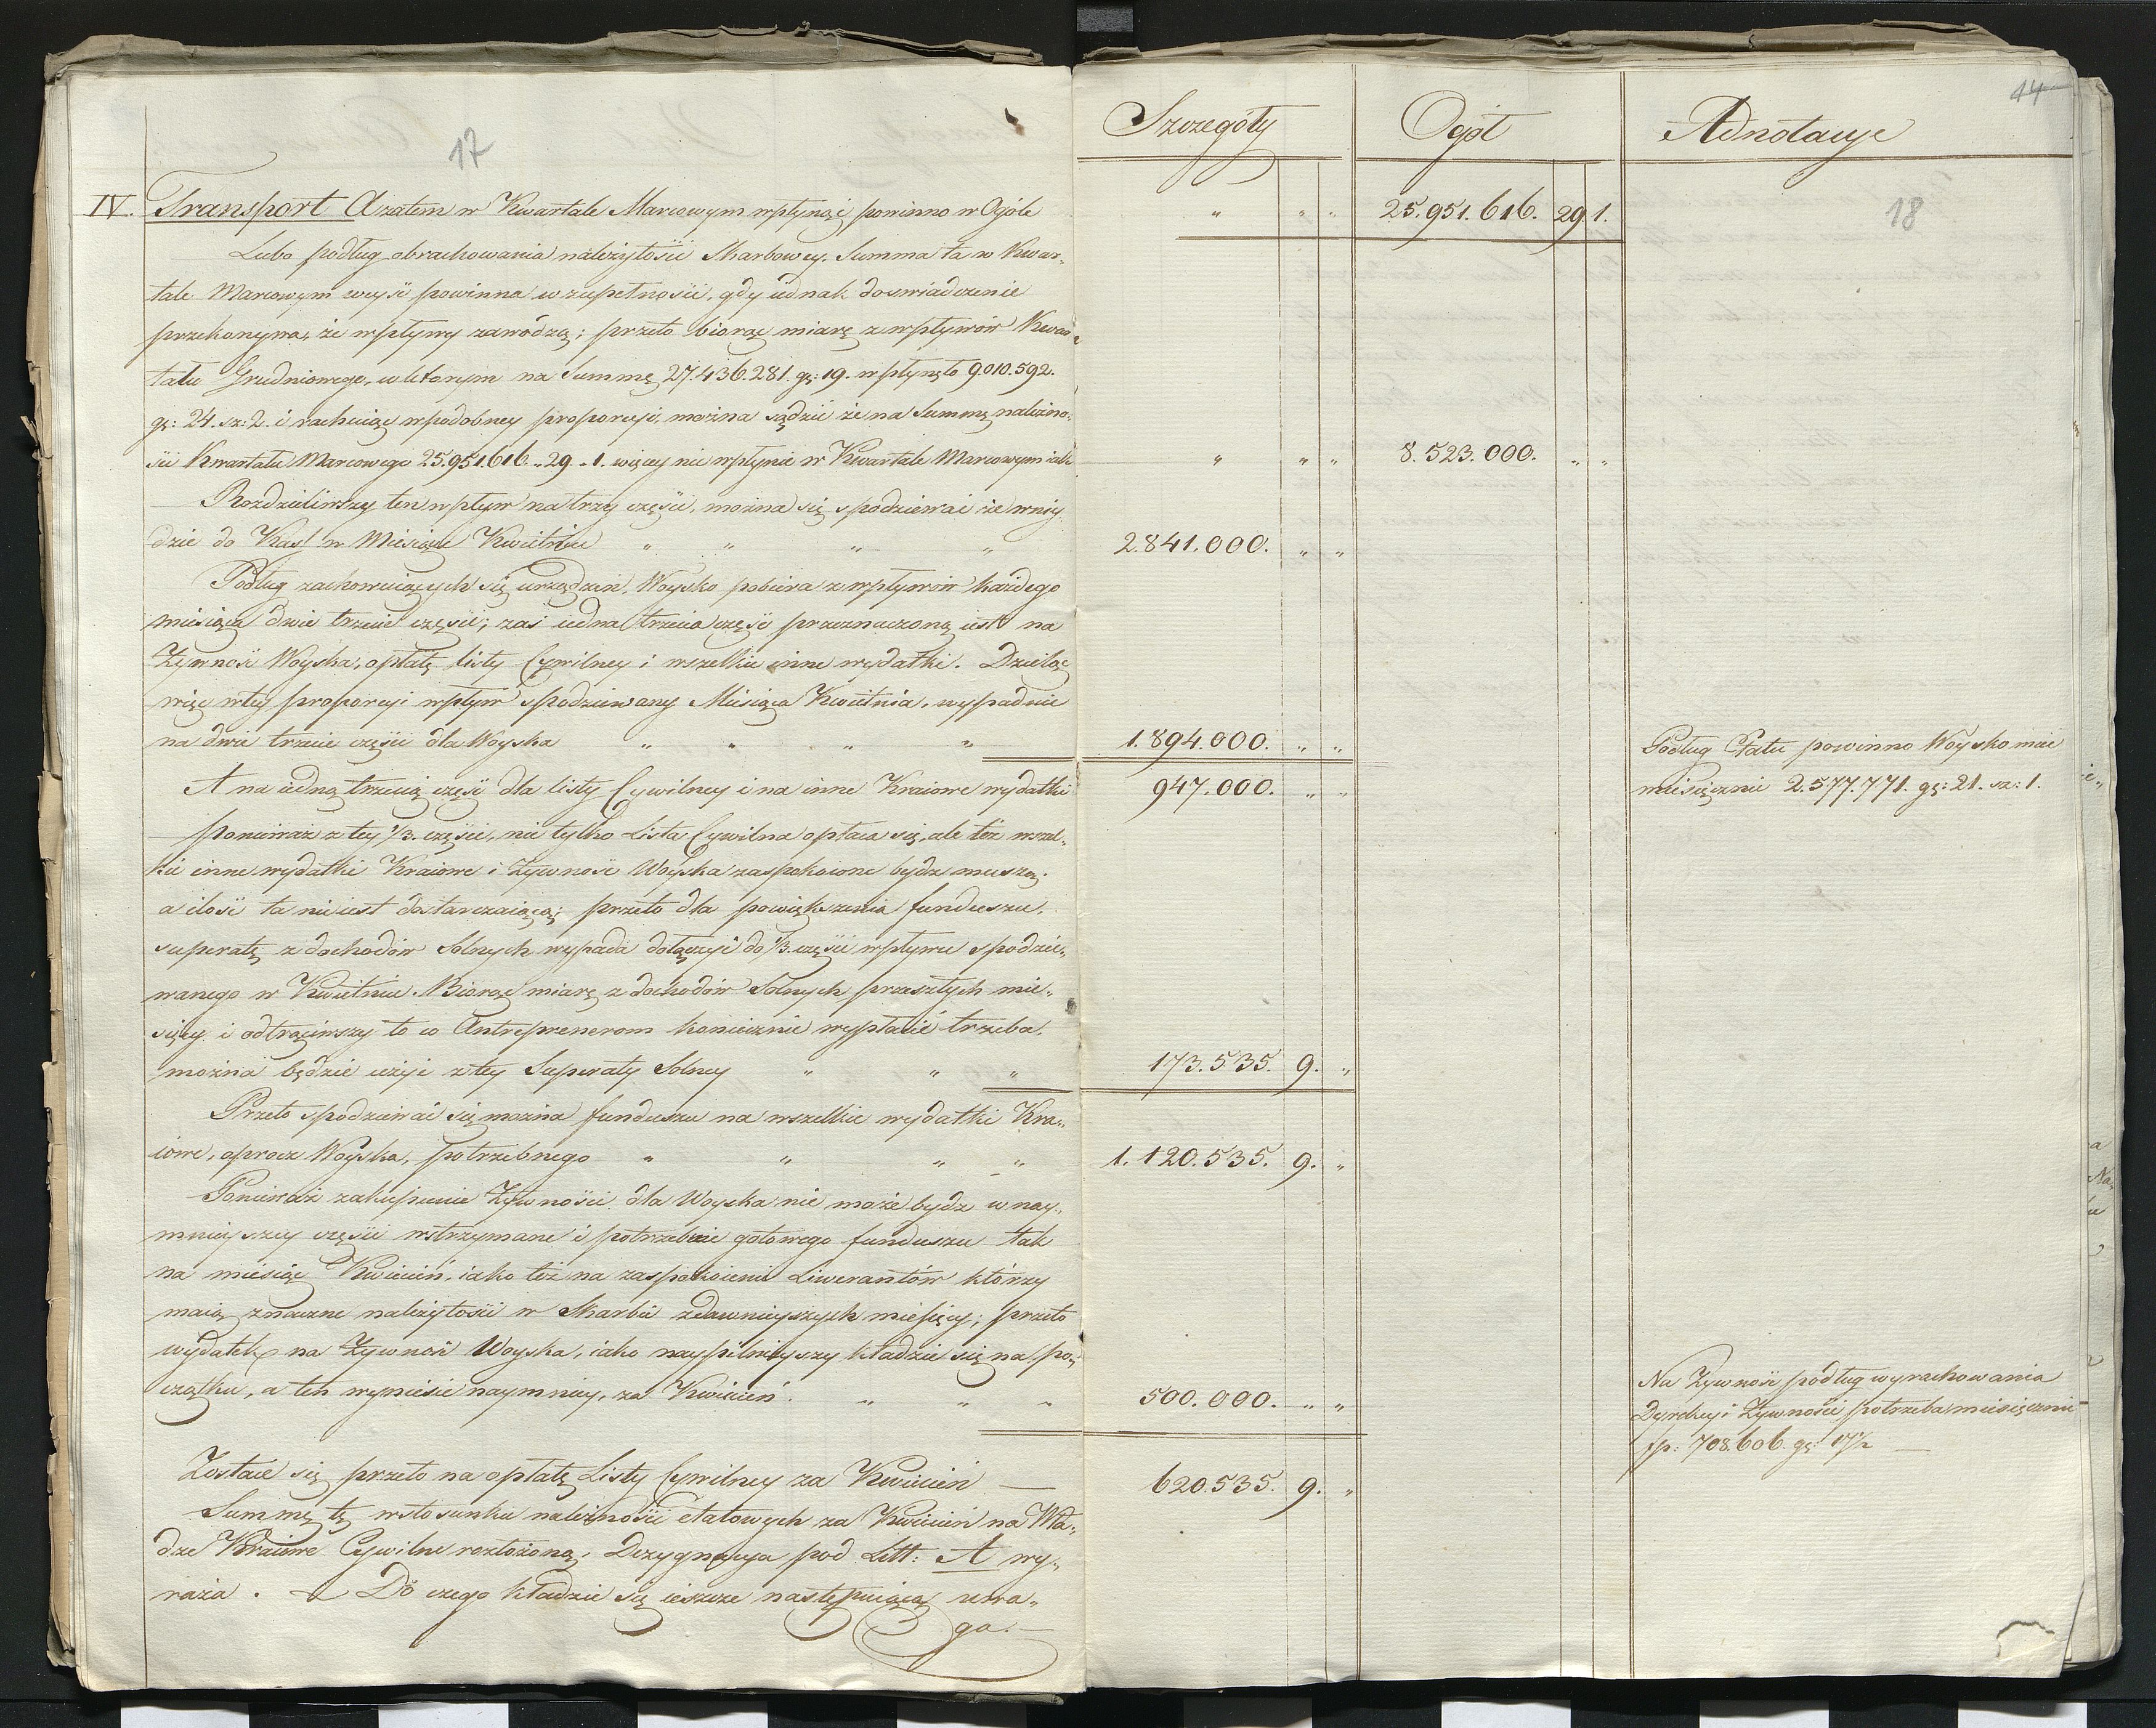 17
Szczegóły Ogół Adnotacye
14
18
IV. Transport A zatem w Kwartale Marcowym wpłynąć powinno w Ogóle " " " 25.951.616. 29 1.
Lubo podług obrachowania należytości Skarbowey. Summa ta w Kwar„
tale Marcowym weyść powinna w zupełności, gdy iednak doswiadczenie
przekonywa, że wpływy zawodzą; przeto biorąc miarę z wpływów Kwar„
tału Grudniowego, w którym na Summę 27.436.281. gr: 19. wpłynęło 9.010.592.
gr: 24. sz: 2. i rachuiąc w podobney proporcyi, można sądzić że na Summę należno„
ści Kwartału Marcowego 25.951.616. „ 29 „ 1. więcey nie wpłynie w Kwartale Marcowym iak " " " 8.523.000. " "
Rozdzieliwszy ten wpływ na trzy części, można się spodziewać że wniy
dzie do Kass w Miesiącu Kwietniu " " " " 2.841.000. " "
Podług zachowuiących się urządzeń, Woysko pobiera z wpływów każdego
miesiąca dwie trzecie części; zaś iedna trzecia część przeznaczoną iest na
Żywność Woyska, opłatę listy Cywilney i wszelkie inne wydatki. Dzieląc
więc w tey proporcyi wpływ spodziewany Miesiąca Kwietnia, wypadnie
na dwie trzecie części dla Woyska " " " " 1.894.000. " "
Podług Etatu powinno Woysko mieć
miesięcznie 2.577.771. gr: 21. sz: 1.
A na iedną trzecią część dla listy Cywilney i na inne Kraiowe wydatki 947.000. " "
Ponieważ z tey 1/3. części, nie tylko Lista Cywilna opłaca się, ale też wszel„
kie inne wydatki Kraiowe i Żywność Woyska zaspokoione bydź muszą.
a ilość ta nie iest dostarczaiącą; przeto dla powiększenia funduszu,
superatę z dochodów Solnych wypada dołączyć do 1/3. części wpływu spodzie„
wanego w Kwietniu. Biorąc miarę z dochodów Solnych przeszłych mie„
sięcy i odtrąciwszy to co Antreprenerom koniecznie wypłacić trzeba,
można będzie użyć z tey Superaty Solney " " " 173.535. 9. "
Przeto spodziewać się można funduszu na wszelkie wydatki Kra„
iowe, oprocz Woyska, potrzebnego " " " " 1.120.535. 9. "
Ponieważ zakupienie Żywności dla Woyska nie może bydź w nay„
mnieyszey części wstrzymane i potrzebuie gotowego funduszu tak
na miesiąc Kwiecień, iako też na zaspokoienie Liwerantów którzy
maią znaczne należytości w Skarbie z dawnieyszych miesięcy; przeto
wydatek na Żywność Woyska, iako naypilnieyszy kładzie się na po„
czątku, a ten wyniesie naymniey, za Kwiecień. " " " 500.000. " "
Na Żywność podług wyrachowania
Dyrekcyi Żywności potrzeba miesięcznie
fp: 708.606. gr: 17½
Zostaie się przeto na opłatę Listy Cywilney za Kwiecień — 620.535. 9. "
Summę tę w stosunku należności etatowych za Kwiecień na Wła„
dze Kraiowe Cywilne rozłożoną, Dezygnacya pod Litt: A wy„
raża. — Do czego kładzie się ieszcze następuiąca uwa„
ga. —